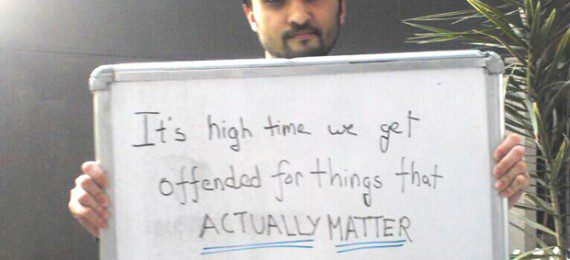 It's high time we get
offended for things that
ACTUALLY MATTER